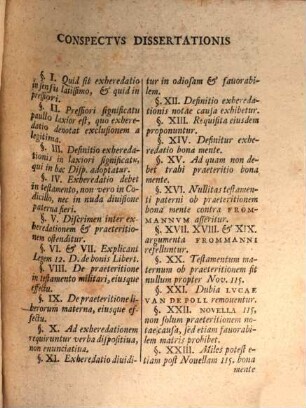 CONSPECTVS DISSERTATIONIS
§. I. Quid sit exheredatio
in sensu latissimo, & quid in
pressiori.
§. II. Pressiori significatu
paullo laxior est, quo exhere-
datio denotat exclusionem a
legitima.
§. III. Definitio exhereda-
tionis in laxiori significatu, qui
in hac Disp. adoptatur.
§. IV. Exheredatio debet
in testamento, non vero in Codi-
cillo, nec in nuda divisione
paterna fieri.
§. V. Discrimen inter ex-
heredationem & praeteritio-
nem ostenditur.
§. VI. & VII. Explicant
Legem 12. D. de bonis Libert.
§. VIII. De praeteritione
in testamento militari, eiusque
effectu.
§. IX. De praeteritione li-
berorum materna, eiusque ef-
fectu.
§. X. Ad exheredationem
requiruntur verba dispositiua,
non enunciatiua.
§. XI. Exheredatio diuidi-
tur in odiosam & fauorabi-
lem.
§. XII. Definitio exhereda-
tionis notae causa exhibetur.
§. XIII. Requisita eiusdem
proponuntur.
§. XIV. Definitur exhere-
datio bona mente.
§. XV. Ad quam non de-
bet trahi praeteritio bona
mente.
§. XVI. Nullitas testamen-
ti paterni ob praeteritionem
bona mente contra FROM-
MANNVM asseritur.
§. XVII. XVIII. & XIX.
argumenta FROMMANNI
refelluntur.
§. XX. Testamentum ma-
ternum ob praeteritionem sit
nullum propter Nov. 115.
§. XXI. Dubia LVCAE
VAN DE POLL remouentur.
§. XXII. NOVELLA 115,
non solum praeteritionem no-
tae causa, sed etiam fauorabi-
lem matris prohibet.
§. XXIII. Miles potest e-
tiam post Nouellam 115. bona
mente